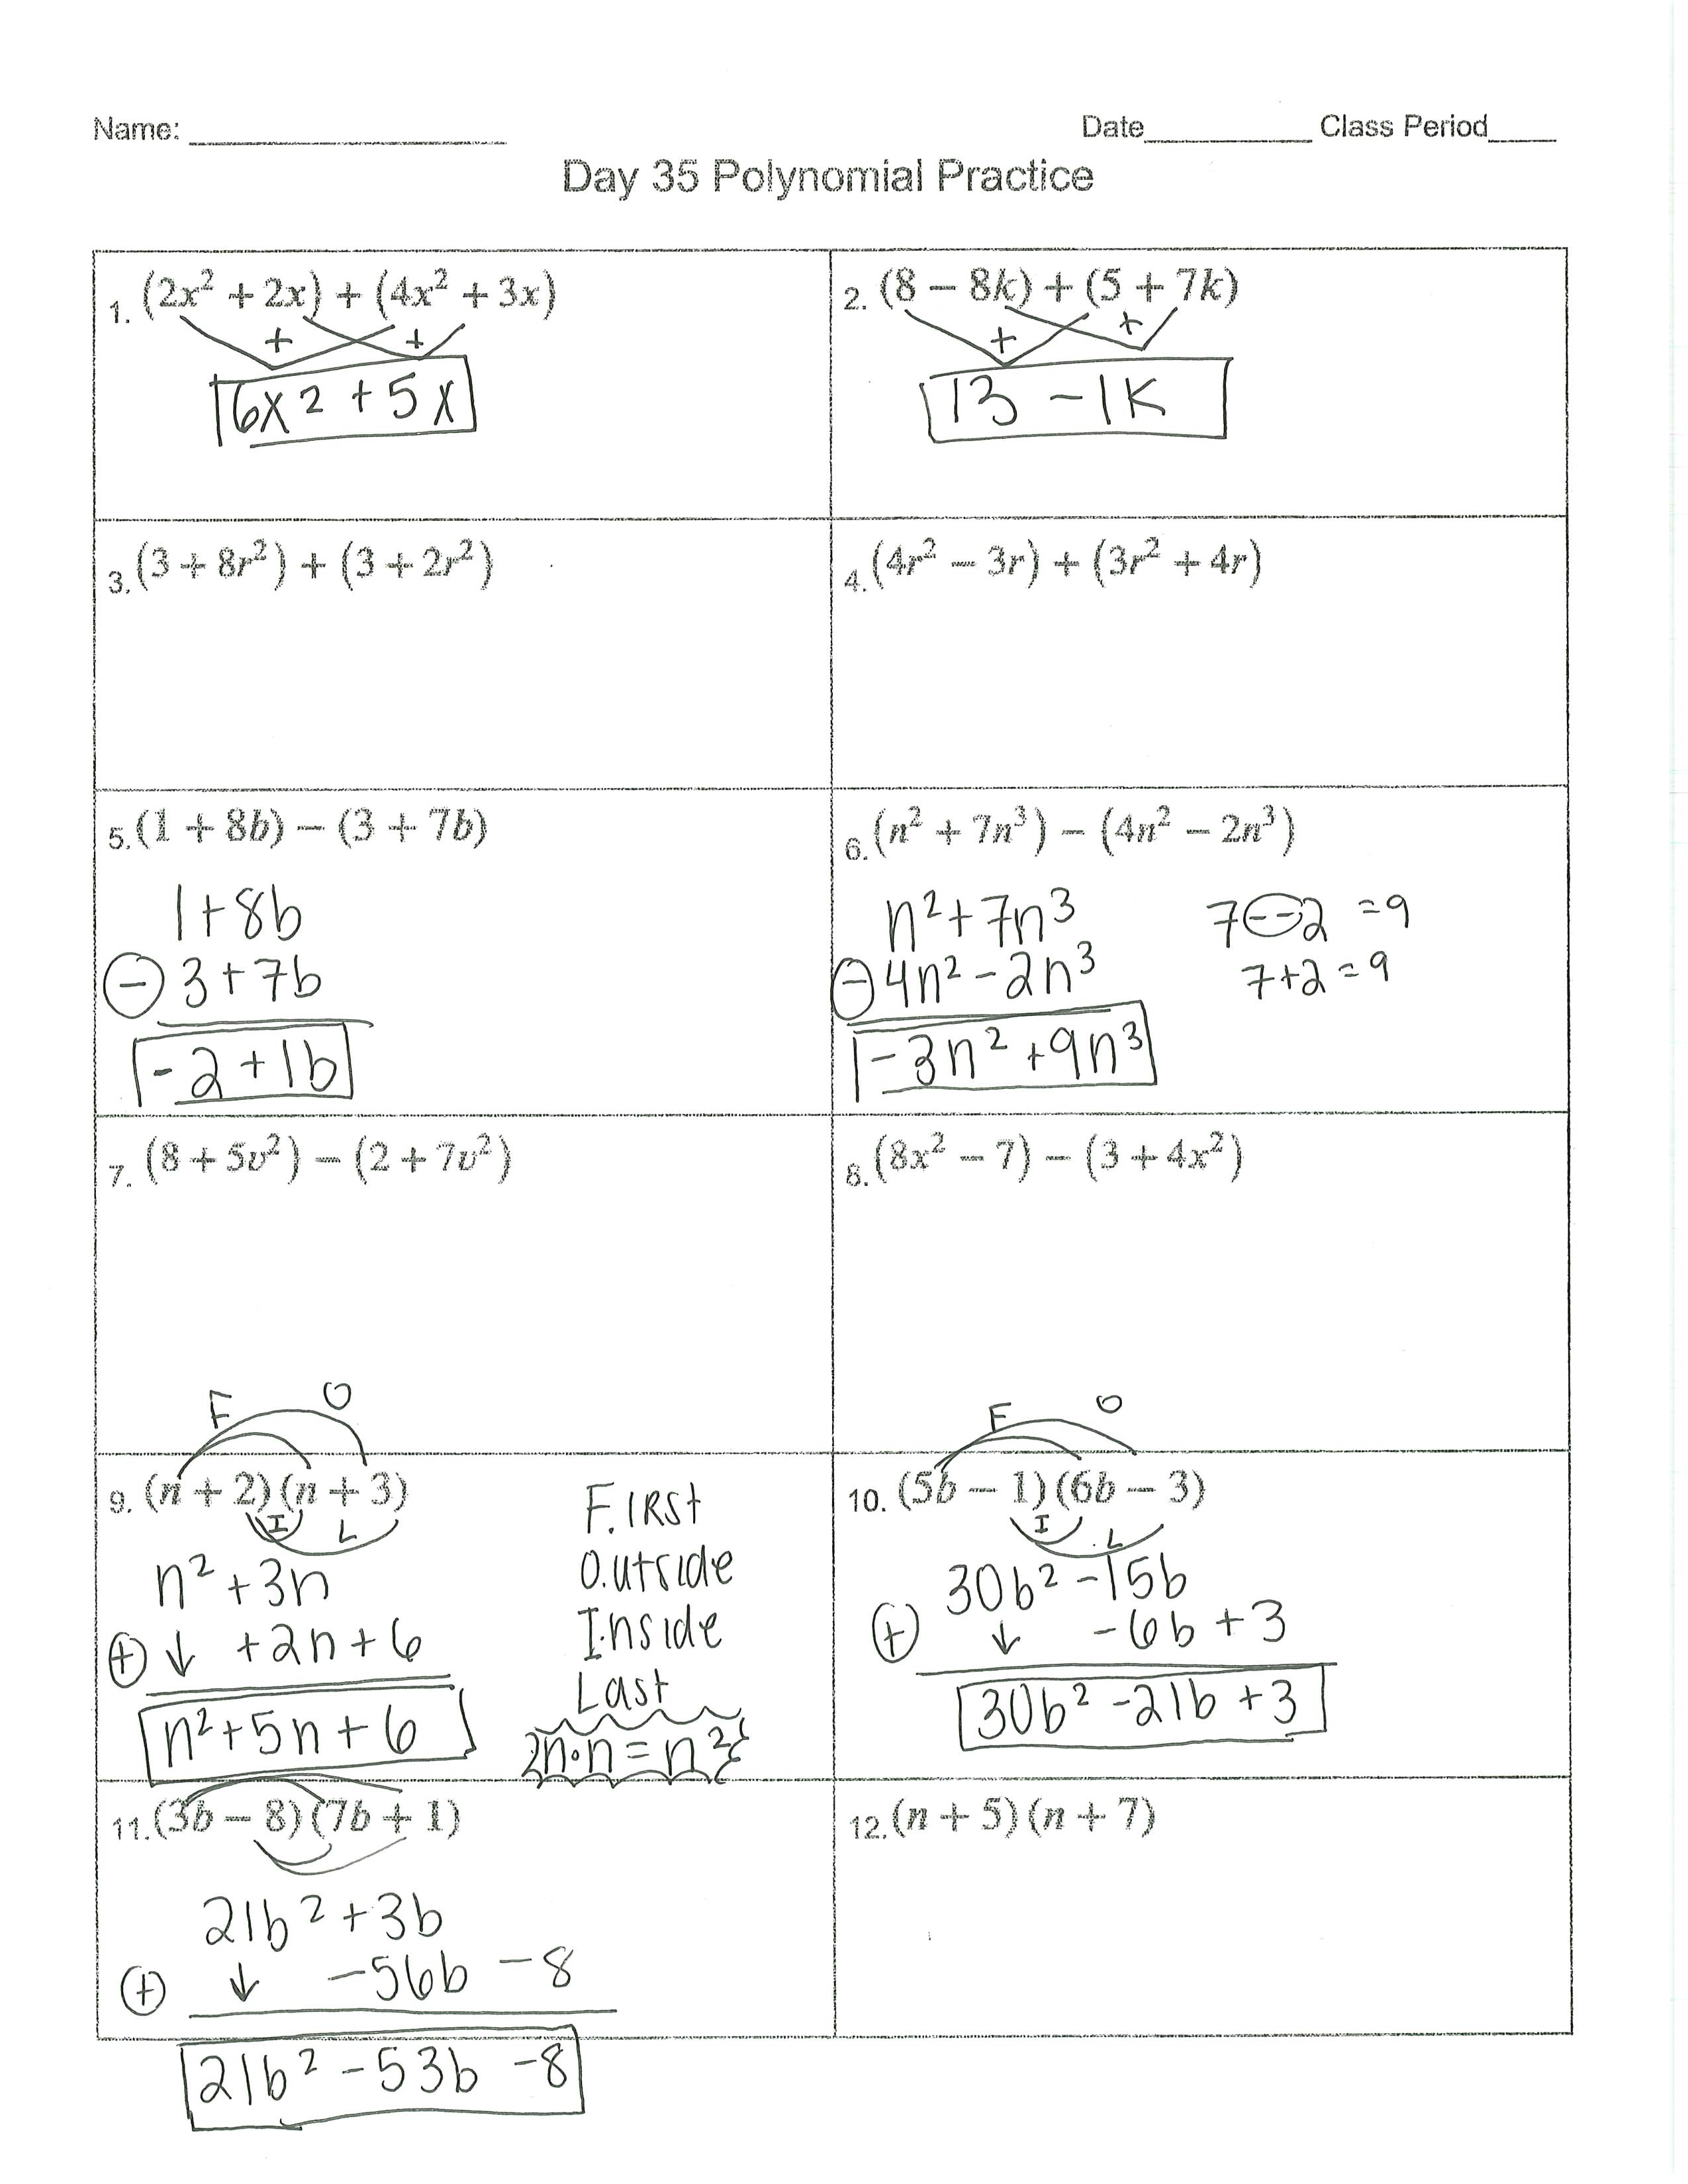 Name: ____________ Date________ Class Period____
Day 35 Polynomial Practice
1. (2x² + 2x) + (4x² + 3x)
+ +
6x2 + 5x
2. (8 − 8k) + (5 + 7k)
+ +
13 − 1k
3. (3 + 8r²) + (3 + 2r²)
4. (4r² − 3r) + (3r² + 4r)
5. (1 + 8b) − (3 + 7b)
1 + 8b
− 3 + 7b
-2 + 1b
6. (n² + 7n³) − (4n² − 2n³)
n² + 7n³ 7 − −2 = 9
− 4n² − 2n³ 7+2 = 9
−3n² + 9n³
7. (8 + 5v²) − (2 + 7v²)
8. (8x² − 7) − (3 + 4x²)
F O
9. (n + 2)(n + 3)
I L
n² + 3n
+ ↓ +2n + 6
n² + 5n + 6
F.irst
O.utside
I.nside
Last
n·n = n²
F O
10. (5b − 1)(6b − 3)
I L
30b² − 15b
+ ↓ −6b + 3
30b² − 21b + 3
11. (3b − 8)(7b + 1)
21b² + 3b
+ ↓ −56b − 8
21b² − 53b − 8
12. (n + 5)(n + 7)